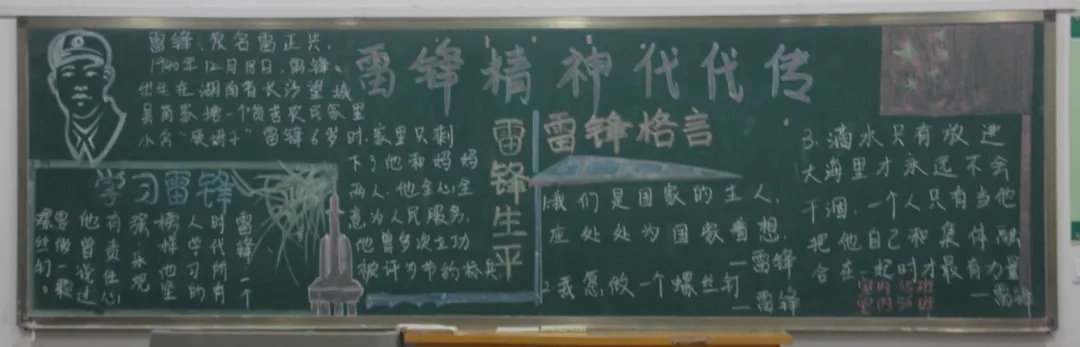 雷锋精神代代传
雷锋, 原名雷正兴,
1940年12月18日, 雷锋
出生在湖南省长沙望城
县简家塘一个贫苦农民家里
小名"庚伢子" 雷锋6岁时, 家里只剩
下了他和妈妈
两人. 他全心全
意为人民服务,
他曾多次立功
被评为节约标兵
雷锋生平
学习雷锋
雷锋一个
时代所有
人学习的
榜样他坚
强乐观
有责任心
他曾说过
要做一颗
螺丝钉。
雷锋格言
1.我们是国家的主人,
应处处为国家着想.
—雷锋
2.我愿做一个螺丝钉
—雷锋
3.滴水只有放进
大海里才永远不会
干涸, 一个人只有当他
把他自己和集体融
合在一起时才最有力量
—雷锋